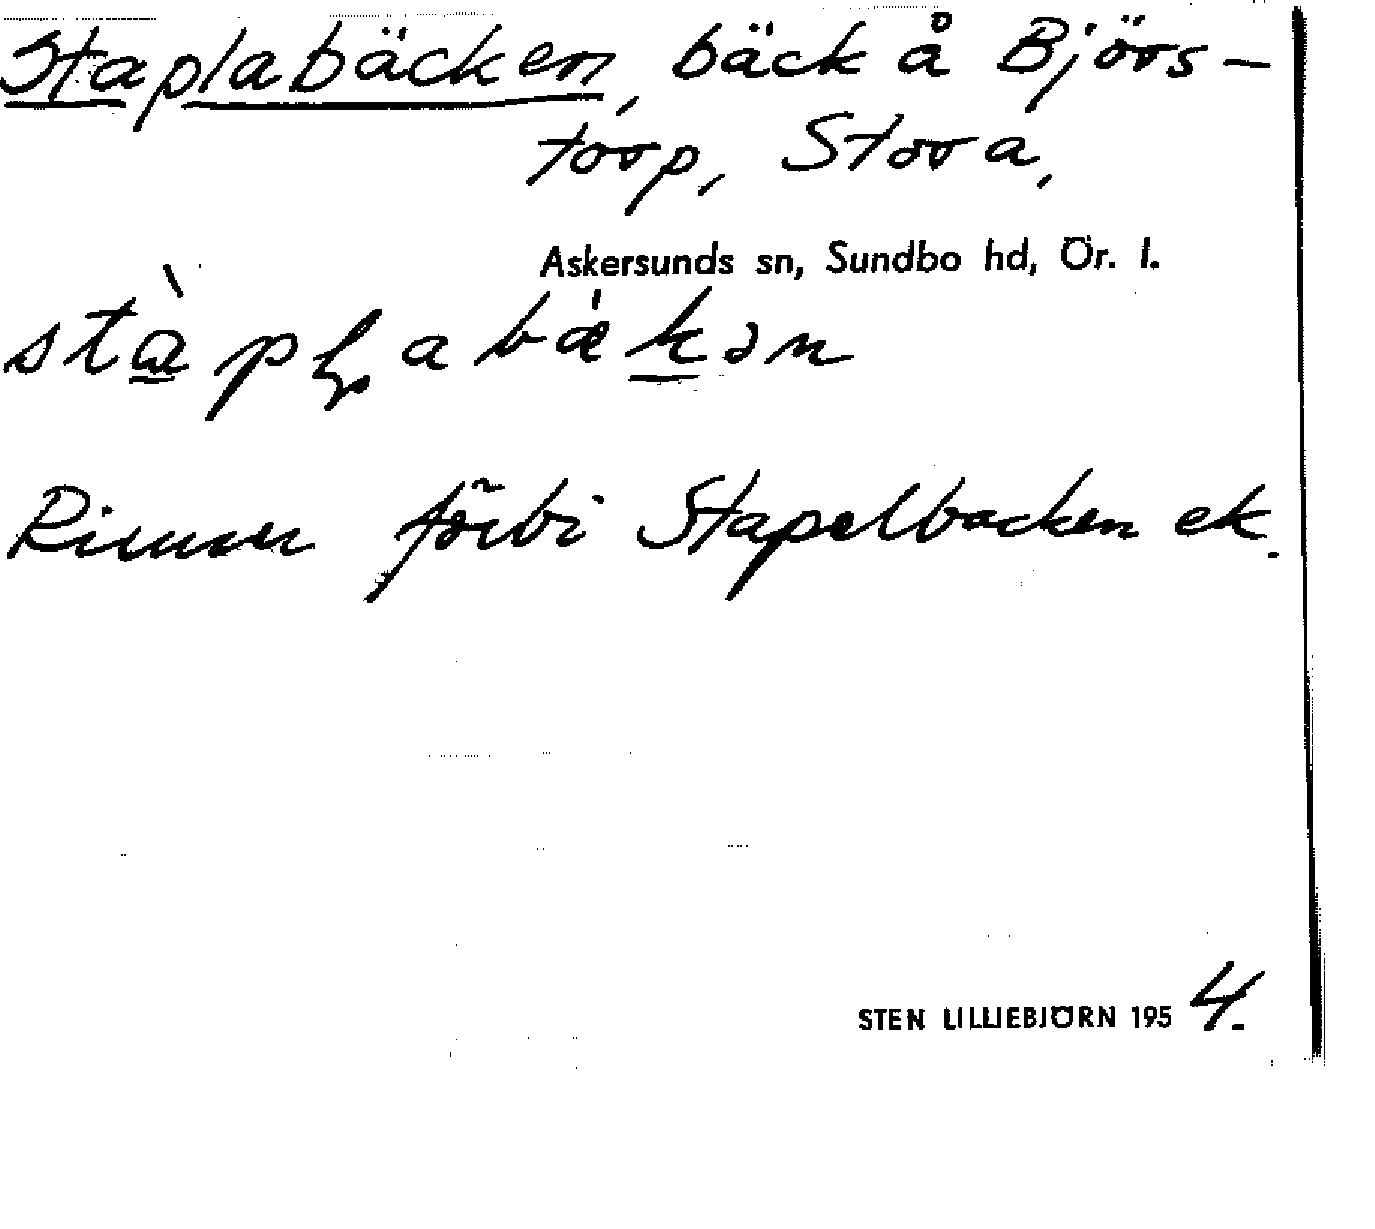 Staplabäcken, bäck å Björs-
torp, Stora,
Askersunds sn, Sundbo hd, Ör. l.
Rinner förbi Stapelbacken ek.
STEN LILLIEBJÖRN 1954.